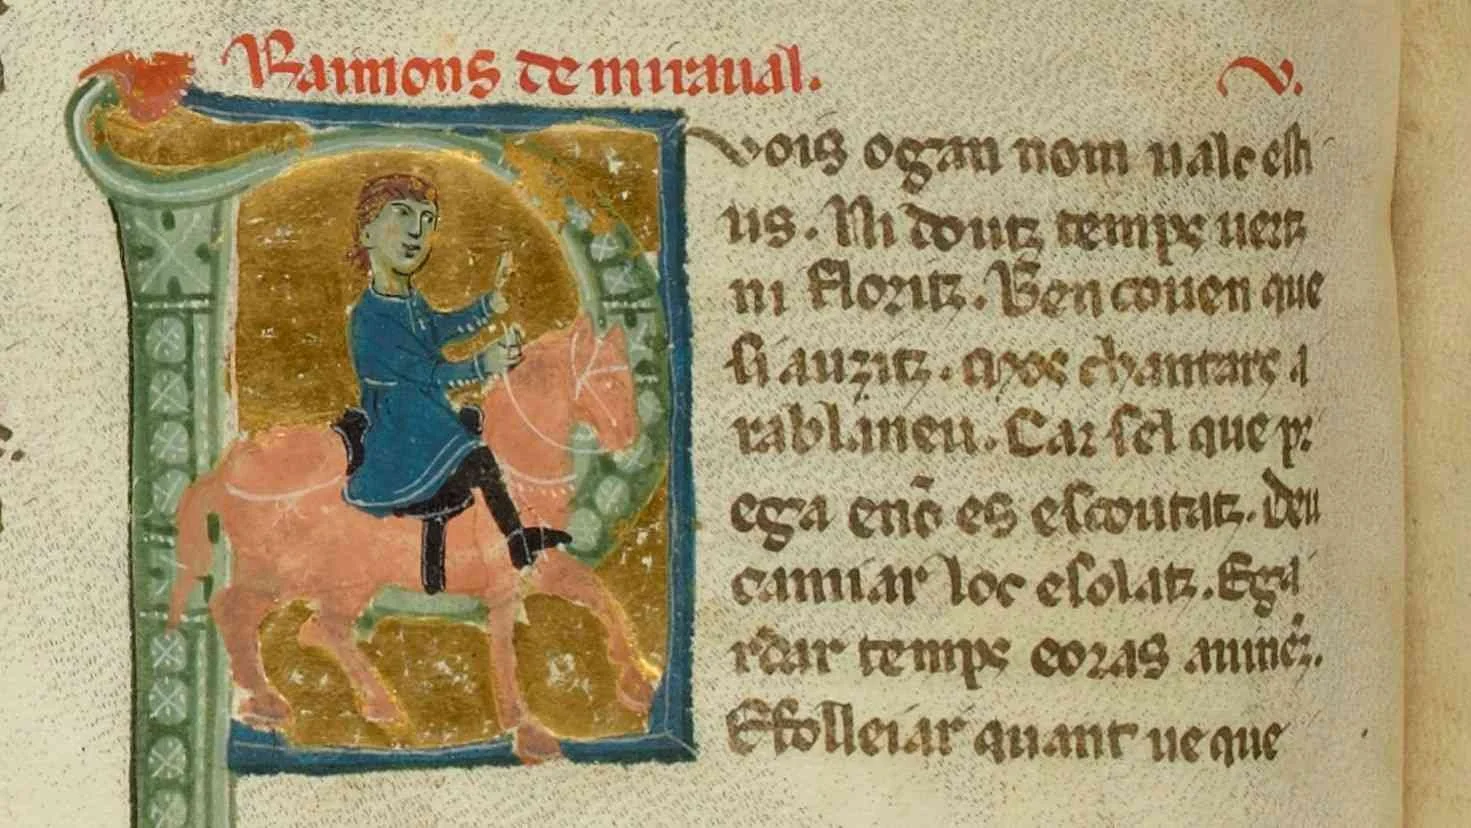 Raimons de miraual. V.
Pois ogan nom ualc esti
us. Ni doutz temps uertz
ni floritz. Ben couen que
si auzitz. mos chantars a
rablineu. Car sel que pr
ega enō es escoutatz. Deu
camiar loc e solatz. Ega
rdar temps e oras auinēz.
E folleiar quant ue que